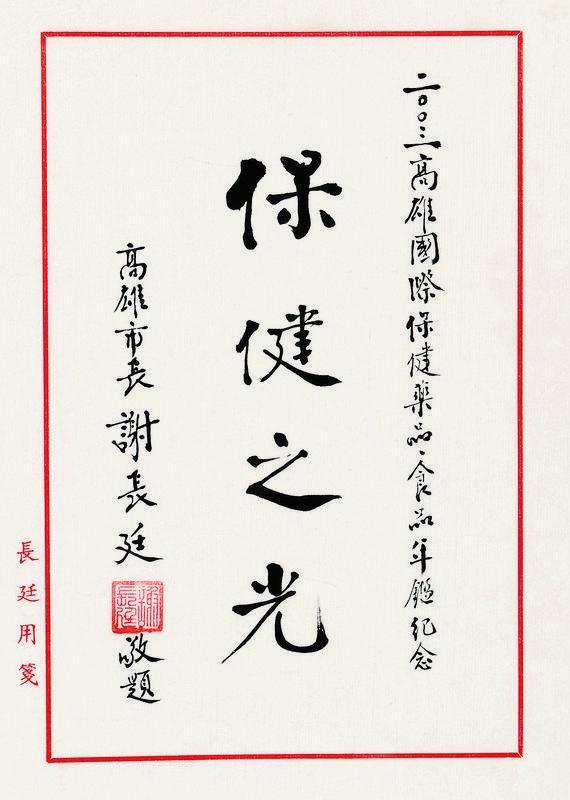 二〇〇三高雄國際保健藥品、食品年鑑紀念
保健之光
高雄市長謝長廷敬題
謝長廷
長廷用箋